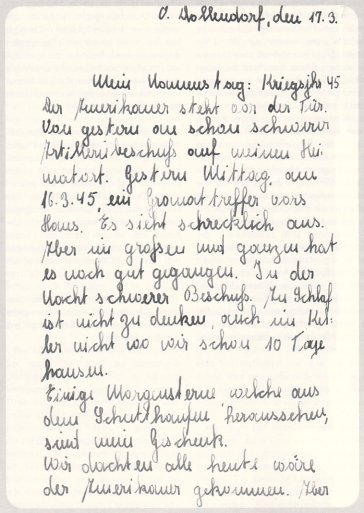 O. Dollendorf, den 17.3.
Mein Namenstag: Kriegsjhr 45
Der Amerikaner steht vor der Tür.
Von gestern an schon schwerer
Artilleriebeschuß auf meinen Hei
matort. Gestern Mittag am
16.3.45, ein Granattreffer vors
Haus. Es sieht schrecklich aus.
Aber im großen und ganzen hat
es noch gut gegangen. In der
Nacht schwerer Beschuß. Zu Schlaf
ist nicht zu denken, auch im Kel-
ler nicht wo wir schon 10 Tage
hausen.
Einige Morgensterne welche aus
dem Schutthaufen heraussehen,
sind mein Geschenk.
Wir dachten alle heute wäre
der Amerikaner gekommen. Aber